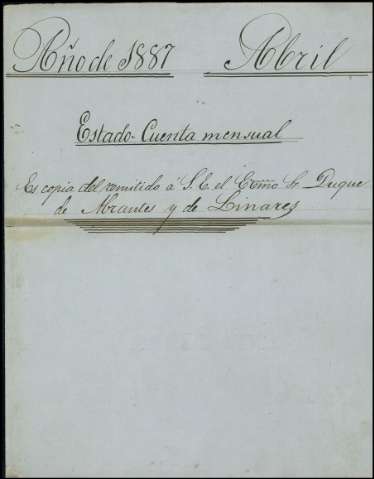 Año de 1887 Abril
Estado-Cuenta mensual
Es copia del remitido a S.E. el Exmo Sr. Duque
de Abrantes y de Linares